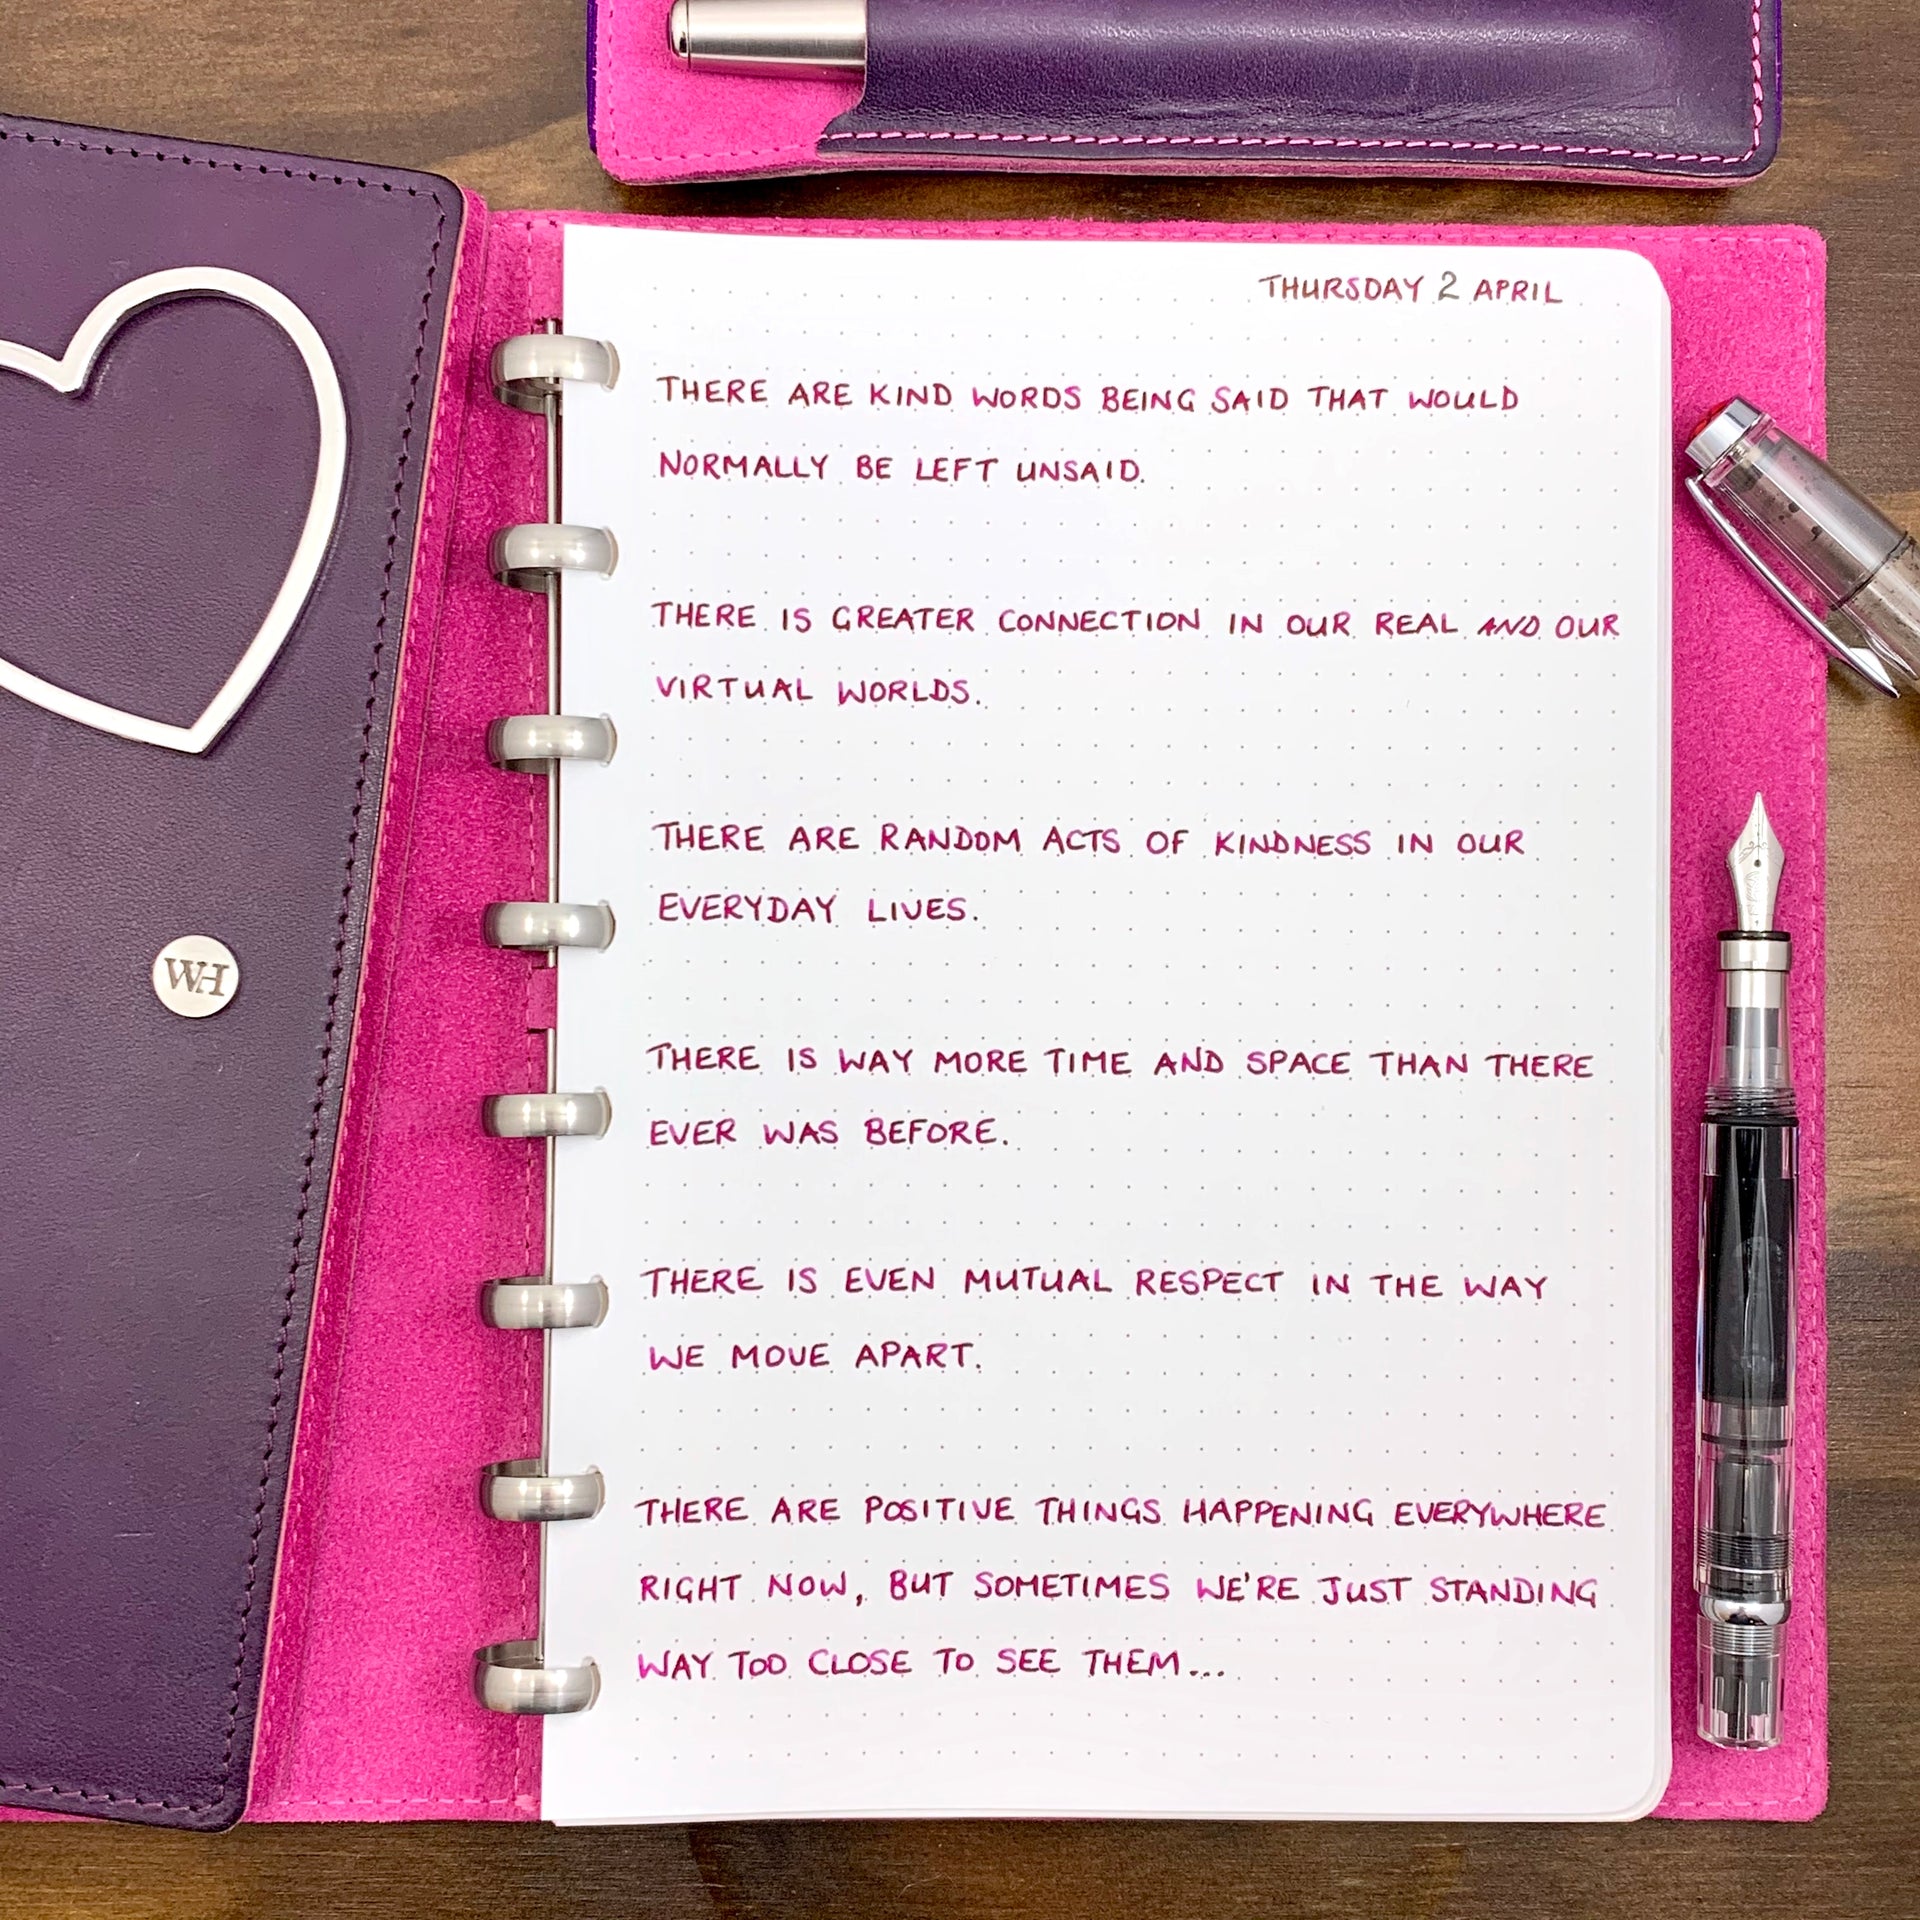 THURSDAY 2 APRIL
THERE ARE KIND WORDS BEING SAID THAT WOULD
NORMALLY BE LEFT UNSAID.
THERE IS GREATER CONNECTION IN OUR REAL AND OUR
VIRTUAL WORLDS.
THERE ARE RANDOM ACTS OF KINDNESS IN OUR
EVERYDAY LIVES.
THERE IS WAY MORE TIME AND SPACE THAN THERE
EVER WAS BEFORE.
THERE IS EVEN MUTUAL RESPECT IN THE WAY
WE MOVE APART.
THERE ARE POSITIVE THINGS HAPPENING EVERYWHERE
RIGHT NOW, BUT SOMETIMES WE'RE JUST STANDING
WAY TOO CLOSE TO SEE THEM...
WH